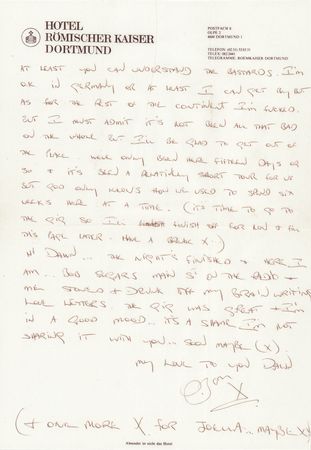 HOTEL
RÖMISCHER KAISER
DORTMUND
POSTFACH 8
OLPE 2
4600 DORTMUND 1
TELEFON
TELEX
TELEGRAMME: ROEMKAISER DORTMUND
AT LEAST YOU CAN UNDERSTAND THE BASTARDS. I'M
O.K IN GERMANY OR AT LEAST I CAN GET BY BUT
AS FOR THE REST OF THE CONTINENT I'M FUCKED.
BUT I MUST ADMIT IT'S NOT BEEN ALL THAT BAD
ON THE WHOLE BUT I'LL BE GLAD TO GET OUT OF
THE PLACE WE'VE ONLY BEEN HERE FIFTEEN DAYS OR
SO & IT'S BEEN A RELATIVELY SHORT TOUR FOR US
BUT GOD ONLY KNOWS HOW WE USED TO SPEND SIX
WEEKS HERE AT A TIME. (IT'S TIME TO GO TO
THE GIG SO I'LL FINISH OFF FOR NOW &
THIS PAGE LATER. HAVE A BREAK X.)
HI DAWN... THE NIGHT'S FINISHED & HERE I
AM... BOB SEGARS MAIN ST ON THE RADIO &
ME STONED & DRUNK OFF MY BRAIN WRITING
LOVE LETTERS THE GIG WAS GREAT & I'M
IN A GOOD MOOD... IT'S A SHAME I'M NOT
SHARING IT WITH YOU... SOON MAYBE (X)
MY LOVE TO YOU DAWN
X
(& ONE MORE X FOR JOELLA... MAYBE XX